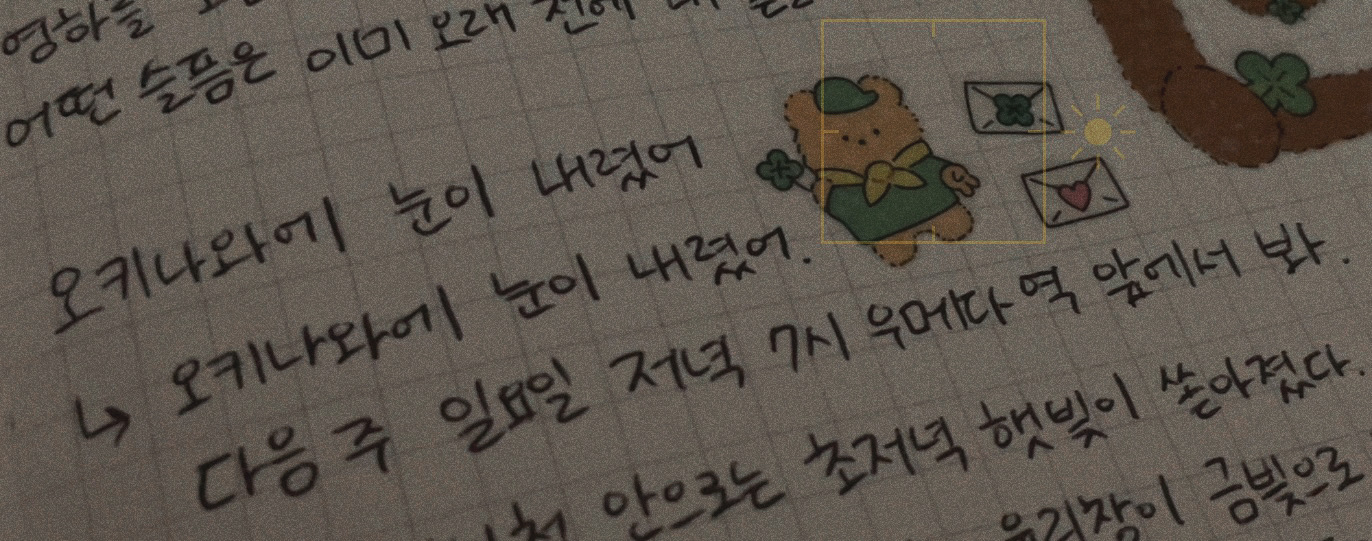 영하를
어떤 슬픔은 이미 오래 전에
오키나와에 눈이 내렸어
↳ 오키나와에 눈이 내렸어.
다음 주 일요일 저녁 7시 우메다 역 앞에서 봐.
안으로는 초저녁 햇빛이 쏟아졌다.
유리창이 금빛으로